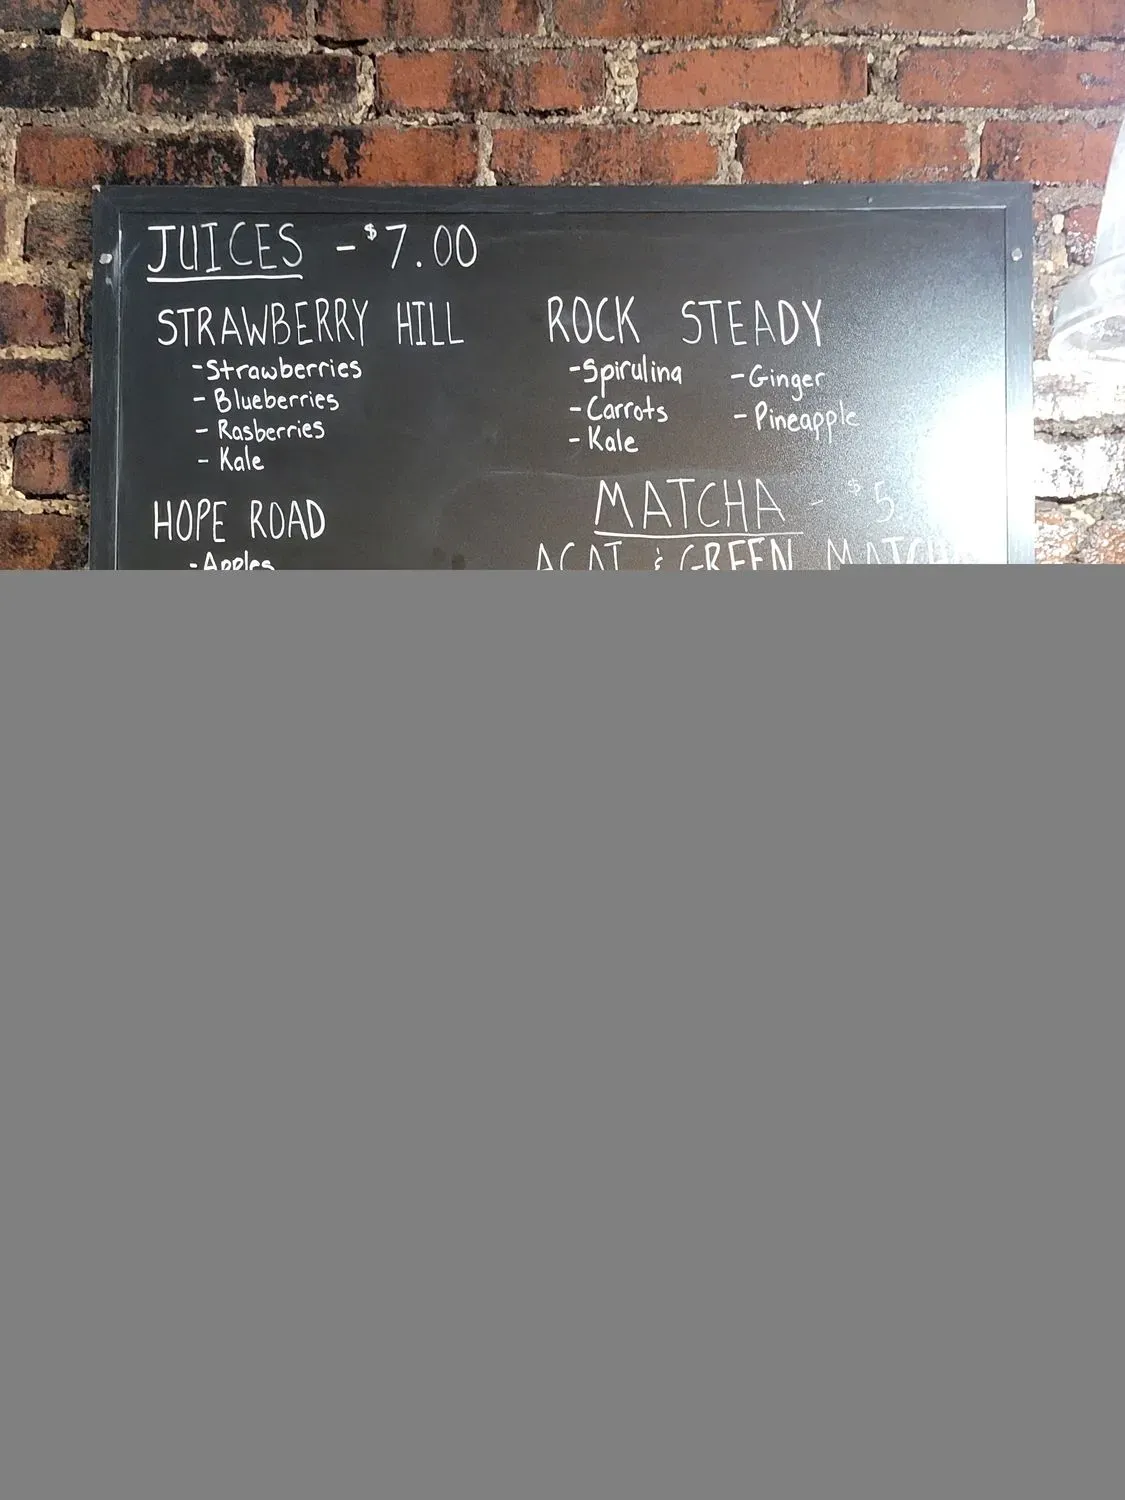 JUICES - $7.00
STRAWBERRY HILL
- Strawberries
- Blueberries
- Rasberries
- Kale
HOPE ROAD
- Apples
ROCK STEADY
- Spirulina
- Carrots
- Kale
- Ginger
- Pineapple
MATCHA - $5
ACAI & GREEN MATCHA